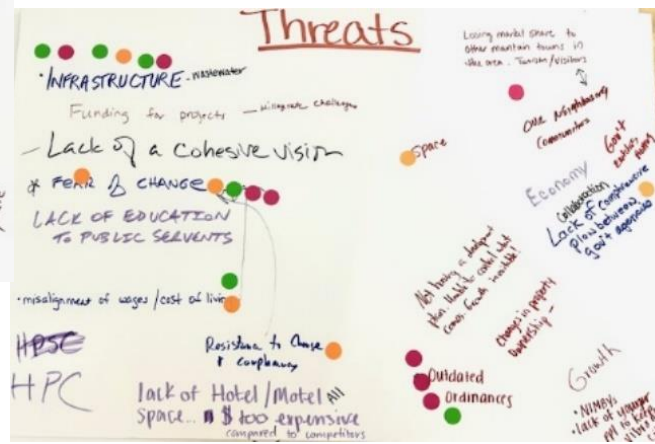 Threats
• INFRASTRUCTURE - wastewater
Funding for projects — challenges
— Lack of a cohesive vision
* FEAR of CHANGE
LACK OF EDUCATION
TO PUBLIC SERVENTS
• misalignment of wages / cost of livin
HPSC
HPC
Resistance to Change
& complacency
lack of Hotel/Motel All
space... $ too expensive
compared to competitors
Losing market share to
other mantain towns in
the area. Tourism/visitors
our neighboring
Communities
Space
Gov't
entities
Economy
Collaboration
Lack of comprehensive
plan between
gov't agencies
Not having a development
plan. Unable to control what
comes. Growth inevitable!
Change in property
ownership —
Outdated
Ordinances
Growth
• NIMBYs
• lack of younger
ppl to keep